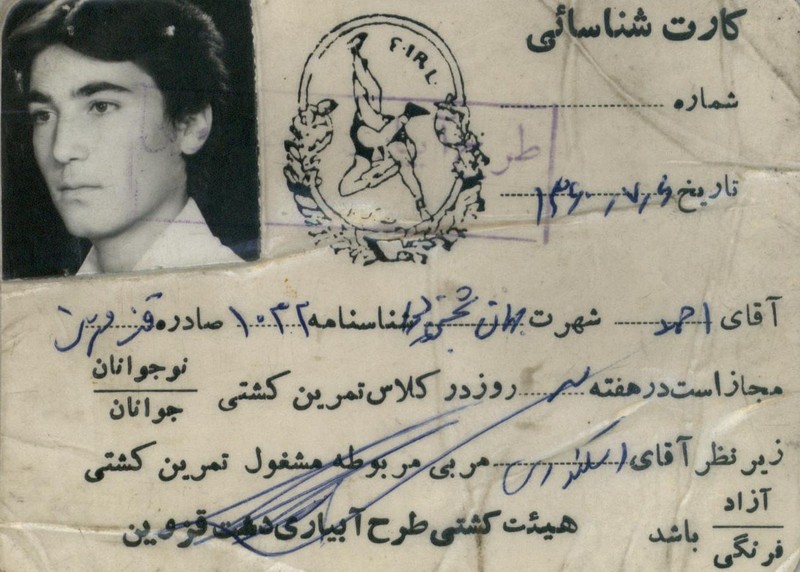 کارت شناسائی
F.I.R.L.
شماره
طر
تاریخ
آقای احمد شهرت شناسنامه ۱۰۳۲ صادره قزوین
مجاز است در هفته سه روز در کلاس تمرین کشتی نوجوانان
جوانان
زیر نظر آقای اسکندری مربی مربوطه مشغول تمرین کشتی
آزاد
فرنگی باشد
هیئت کشتی طرح آبیاری دشت قزوین